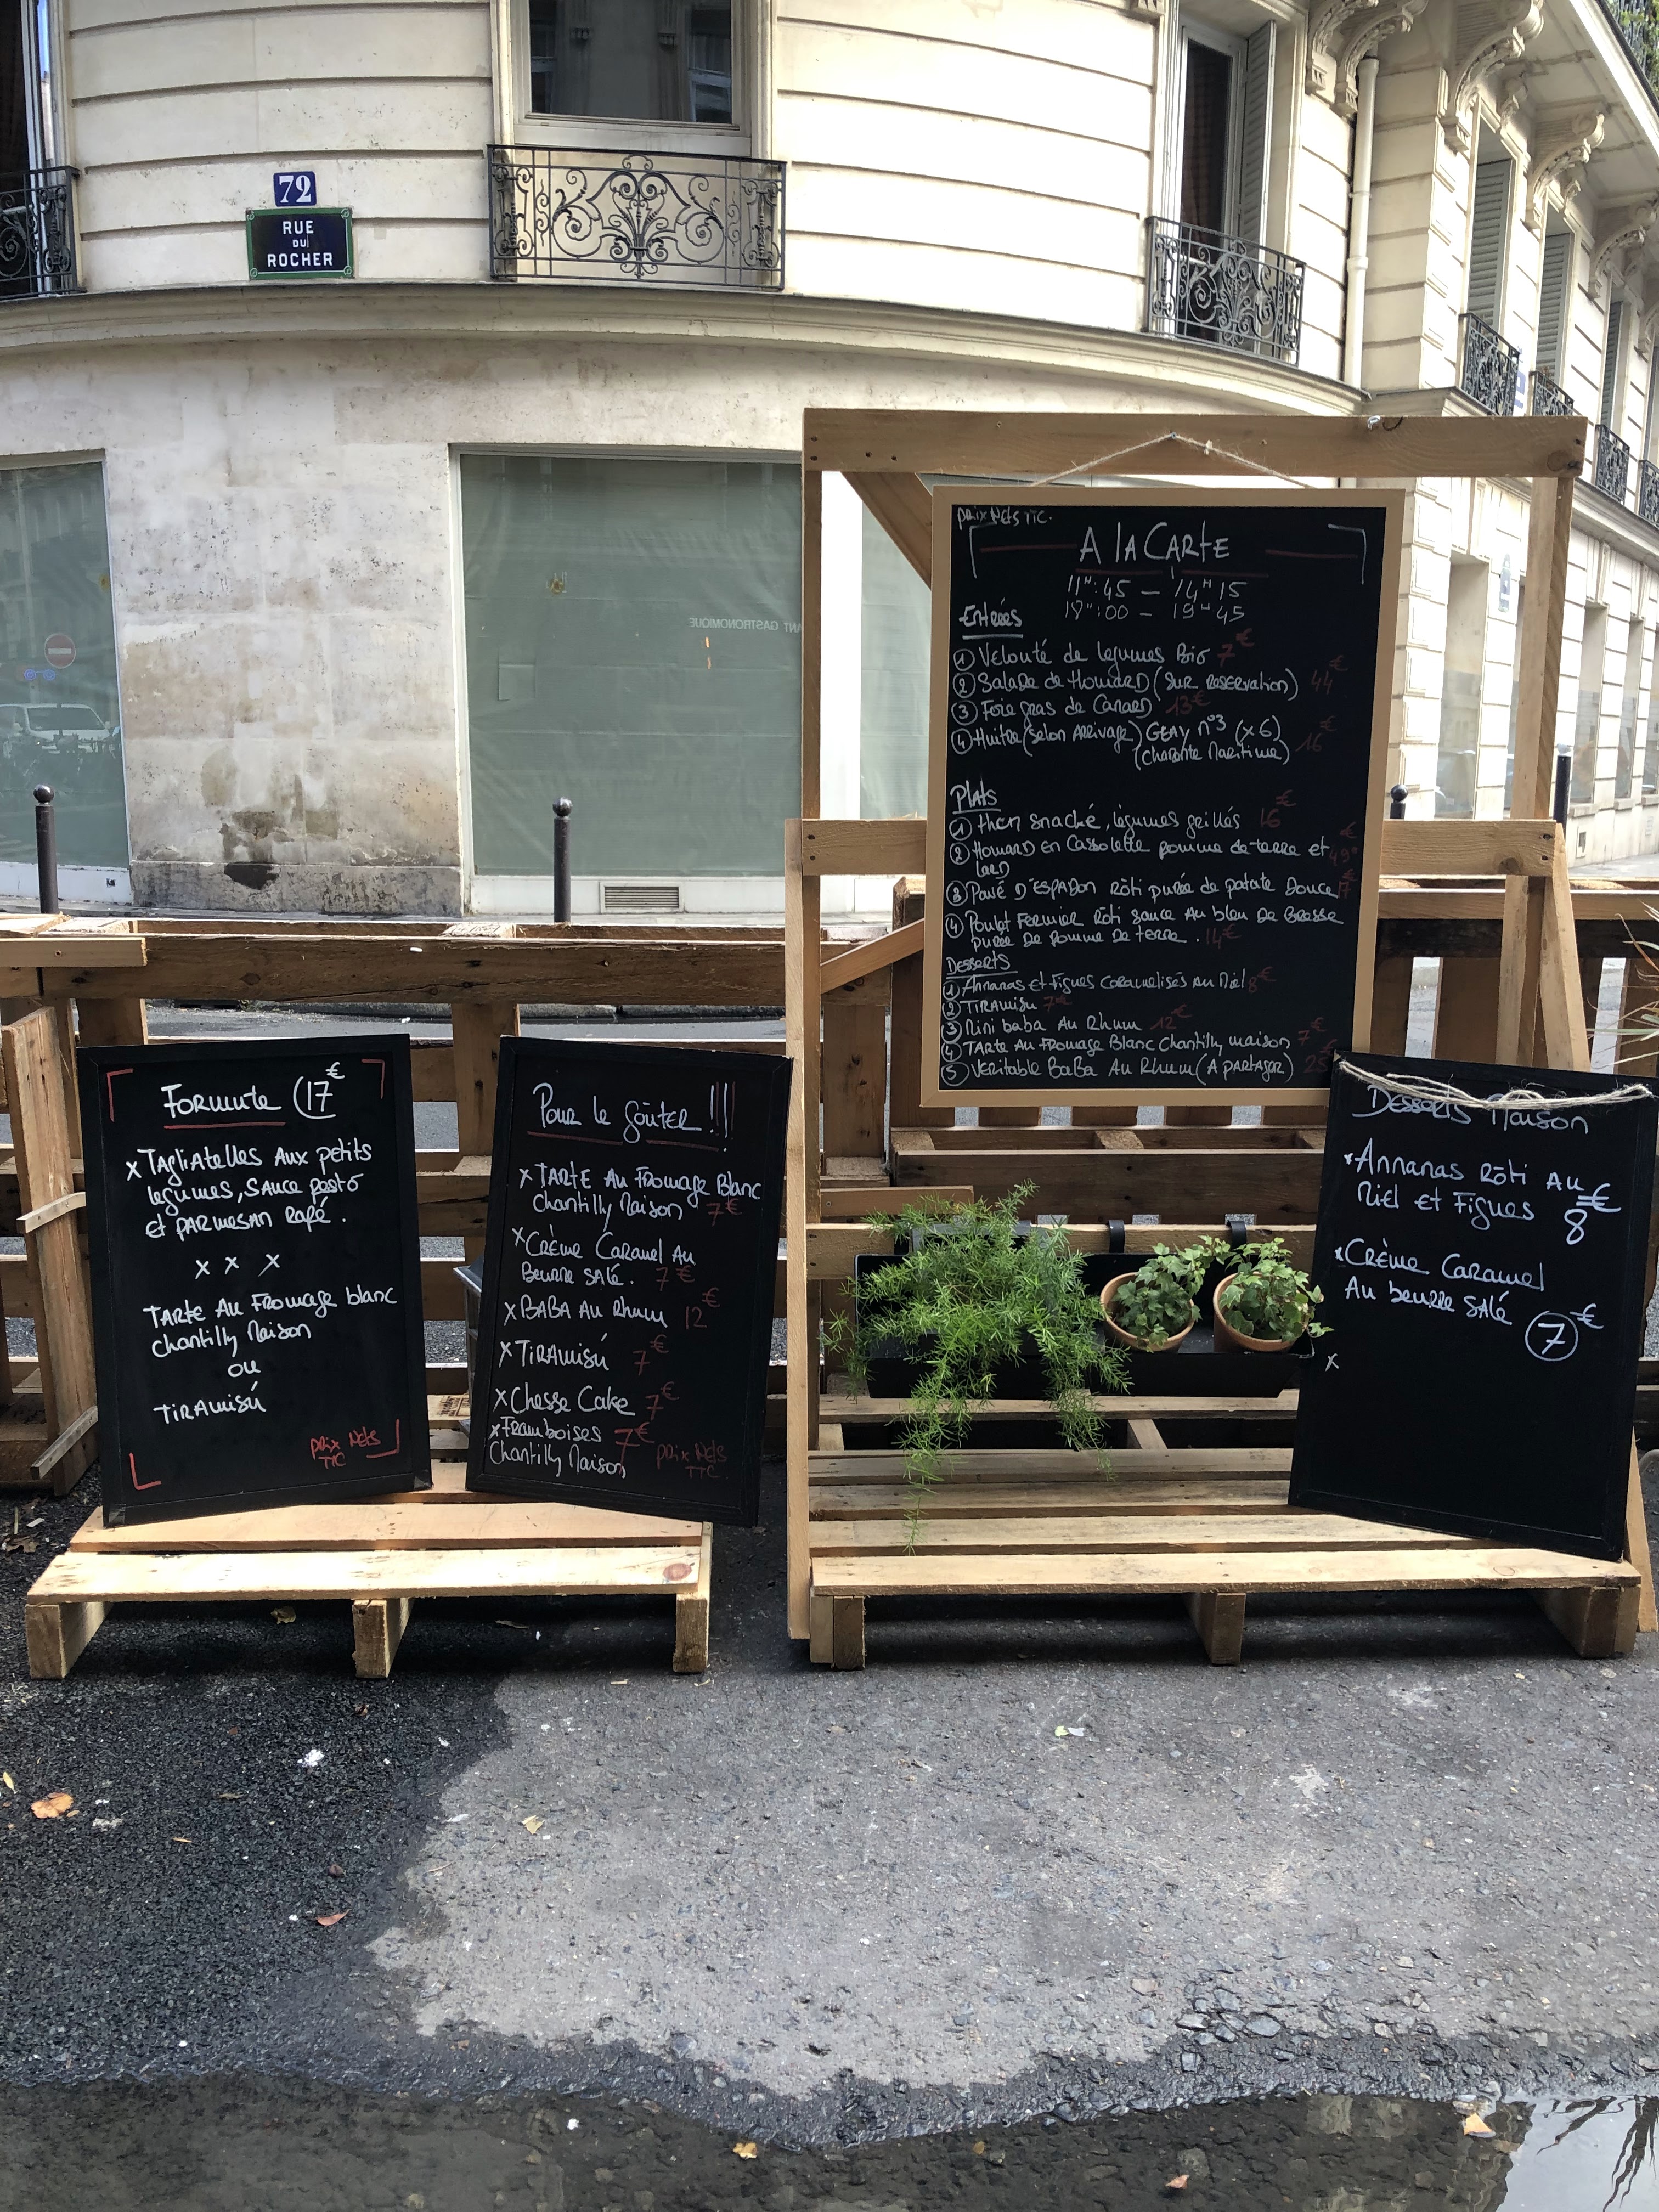 72
RUE
DU
ROCHER
ANT GASTRONOMIQUE
PRIX NETS TTC.
A lA CARTE
11H:45 – 14H15
18H:00 – 19H45
Entrées
1 Velouté de legumes Bio 7€
2 Salade de Homard (sur reservation) 44€
3 Foie gras de Canard 13€
4 Huitre (selon Arrivage) GEAY n°3 (x6) 16€
(charente Maritime)
Plats
1 thon snacké, légumes grillés 16€
2 Homard en Cassolette pomme de terre et 49€
lard
3 Pavé D'ESPADON Rôti purée de patate Douce 17€
4 Poulet Fermier Rôti sauce Au bleu De Bresse
purée De Pomme De terre. 14€
Desserts
1 Annanas et Figues Caramelisés Au Miel 8€
2 TIRAMISU 7€
3 Mini baba Au Rhum 12€
4 TARTE Au FROMAGE Blanc Chantilly maison 7€
5 VERITABLE BABA Au Rhum (A partager) 25€
FORMULE (17€
x TAGLIATELLES Aux petits
legumes, SAUCE pesto
et PARMESAN Rapé.
x x x
TARTE Au FROMAGE blanc
chantilly Maison
ou
TIRAMISÚ
PRIX NETS
TTC
Pour le Goûter !!!
x TARTE Au FROMAGE Blanc
chantilly Maison 7€
x CRÈME CARAMEL Au
Beurre SALÉ. 7€
x BABA Au Rhum 12€
x TIRAMISÚ 7€
x Chesse Cake 7€
x FRAMBOISES 7€
Chantilly Maison
PRIX NETS
TTC.
DESSERTS Maison
x ANNANAS Rôti Au
Miel et Figues 8€
x CRÈME CARAMEL
Au beurre SALÉ 7€
x